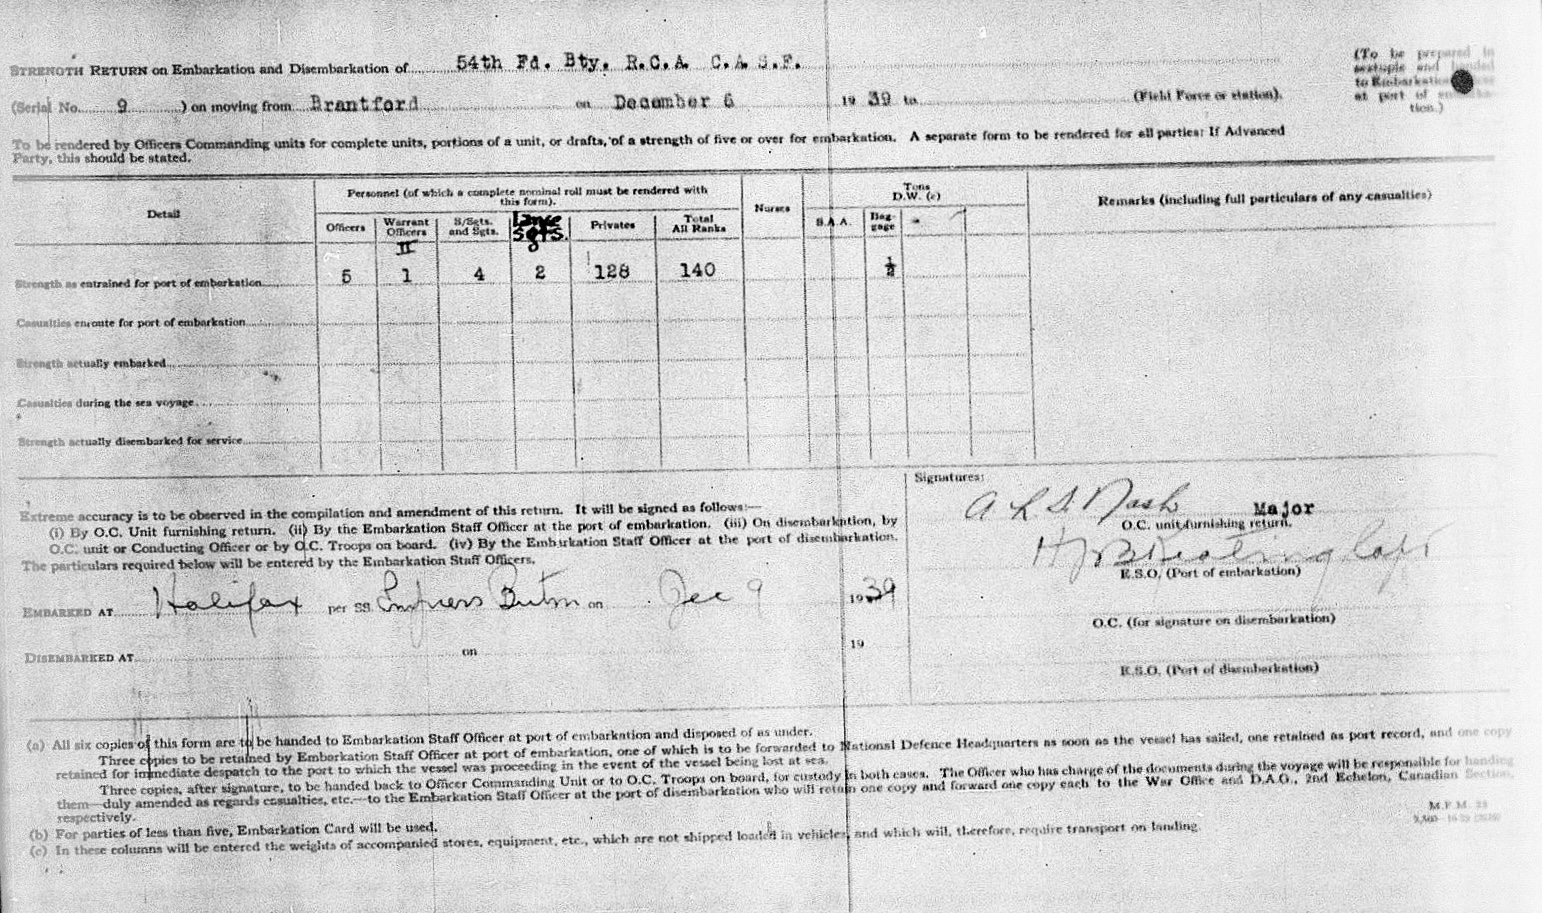 STRENGTH RETURN on Embarkation and Disembarkation of 54th Fd. Bty. R.C.A. C.A.S.F.
(To be prepared in
sextuple and handed
to Embarkation
at port of
tion.)
(Serial No. 9 ) on moving from Brantford on December 6 19 39 to (Field Force or station).
To be rendered by Officers Commanding units for complete units, portions of a unit, or drafts, of a strength of five or over for embarkation. A separate form to be rendered for all parties: If Advanced
Party, this should be stated.
Detail
Personnel (of which a complete nominal roll must be rendered with
this form).
Officers
Warrant
Officers
II
S/Sgts.
and Sgts.
Lance
Sgts.
Privates
Total
All Ranks
Nurses
Tons
D.W. (c)
S.A.A.
Bag-
gage
Remarks (including full particulars of any casualties)
Strength as entrained for port of embarkation 5 1 4 2 128 140 ½
Casualties enroute for port of embarkation
Strength actually embarked
Casualties during the sea voyage
Strength actually disembarked for service
Extreme accuracy is to be observed in the compilation and amendment of this return. It will be signed as follows:—
(i) By O.C. Unit furnishing return. (ii) By the Embarkation Staff Officer at the port of embarkation. (iii) On disembarkation, by
O.C. unit or Conducting Officer or by O.C. Troops on board. (iv) By the Embarkation Staff Officer at the port of disembarkation.
The particulars required below will be entered by the Embarkation Staff Officers.
EMBARKED AT Halifax per SS. Empress Britn on Dec 9 1939
DISEMBARKED AT on 19
Signatures:
A L S Nash Major
O.C. unit furnishing return.
H J B Keating Capt
E.S.O. (Port of embarkation)
O.C. (for signature on disembarkation)
E.S.O. (Port of disembarkation)
(a) All six copies of this form are to be handed to Embarkation Staff Officer at port of embarkation and disposed of as under.
Three copies to be retained by Embarkation Staff Officer at port of embarkation, one of which is to be forwarded to National Defence Headquarters as soon as the vessel has sailed, one retained as port record, and one copy
retained for immediate despatch to the port to which the vessel was proceeding in the event of the vessel being lost at sea.
Three copies, after signature, to be handed back to Officer Commanding Unit or to O.C. Troops on board, for custody in both cases. The Officer who has charge of the documents during the voyage will be responsible for handing
them—duly amended as regards casualties, etc.—to the Embarkation Staff Officer at the port of disembarkation who will retain one copy and forward one copy each to the War Office and D.A.G., 2nd Echelon, Canadian Section,
respectively.
(b) For parties of less than five, Embarkation Card will be used.
(c) In these columns will be entered the weights of accompanied stores, equipment, etc., which are not shipped loaded in vehicles, and which will, therefore, require transport on landing.
M.F.M. 22